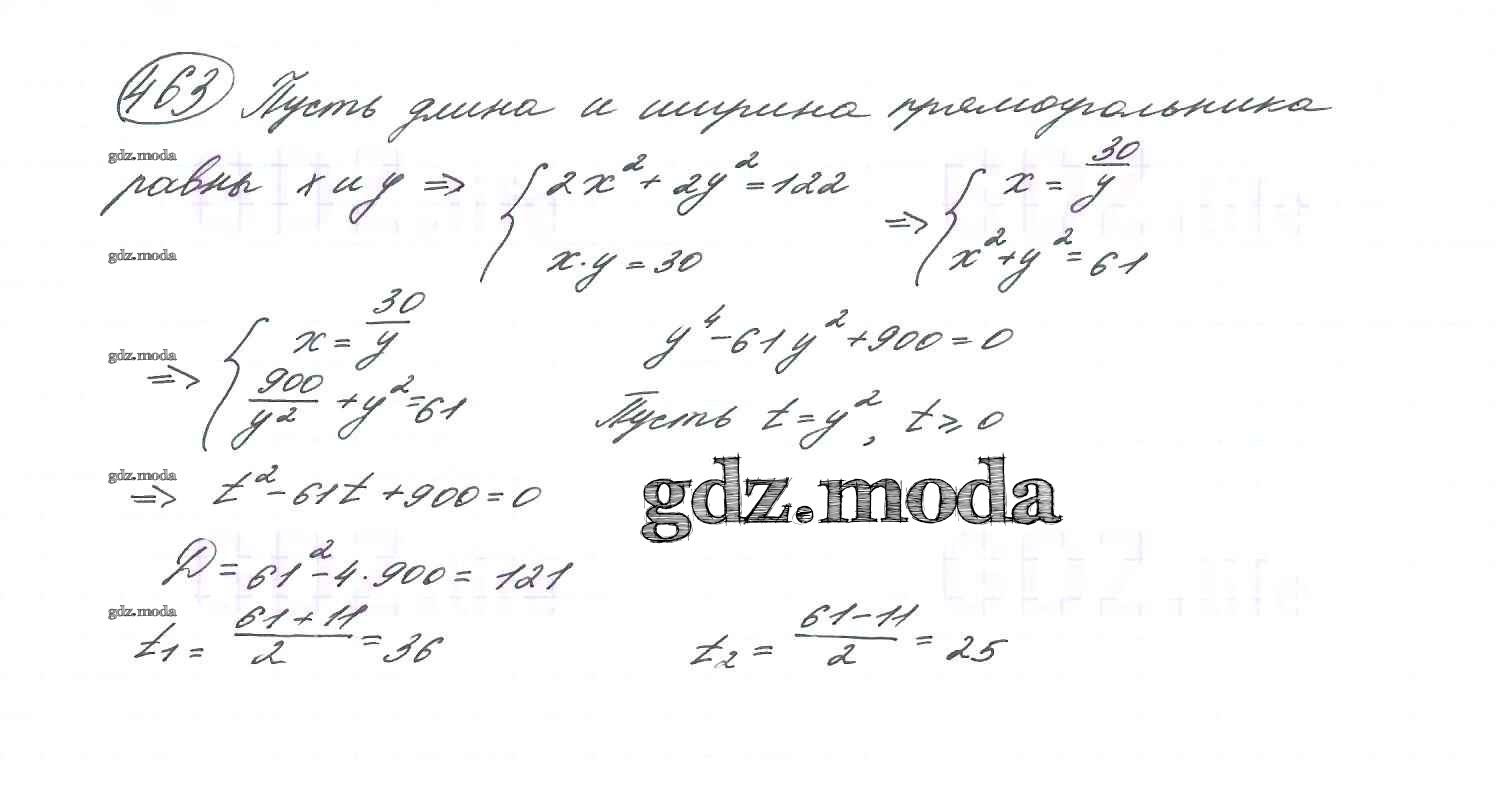 463 Пусть длина и ширина прямоугольника
gdz.moda
равны x и y => { 2x² + 2y² = 122 => { x = 30/y
gdz.moda
x·y = 30 x² + y² = 61
gdz.moda
=> { x = 30/y y⁴ - 61y² + 900 = 0
900/y² + y² = 61 Пусть t = y², t ⩾ 0
gdz.moda
=> t² - 61t + 900 = 0
gdz.moda
D = 61² - 4·900 = 121
gdz.moda
t₁ = (61 + 11)/2 = 36 t₂ = (61 - 11)/2 = 25